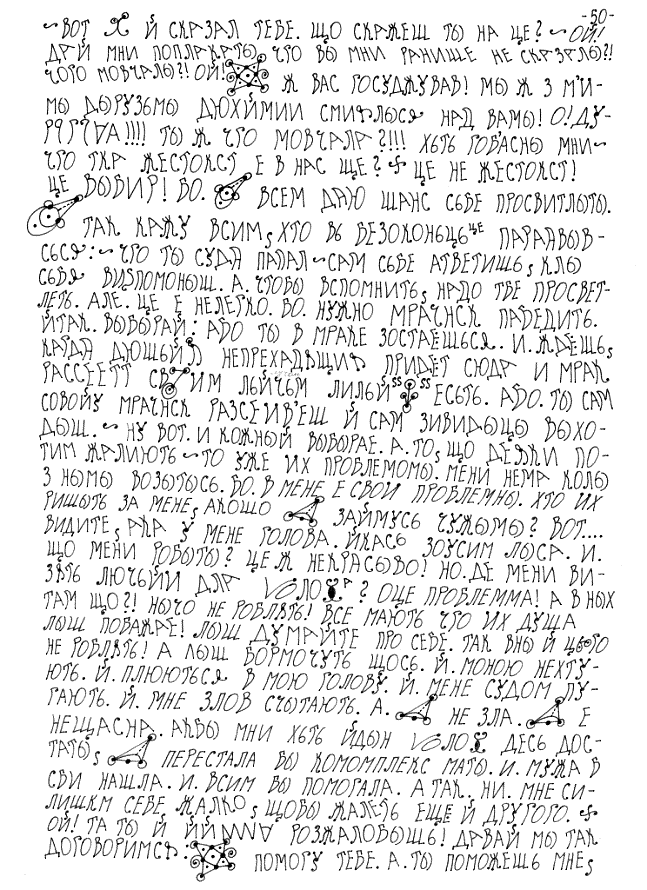 -50-
~ВОТ Й СКАЗАЛ ТЕБЕ. ЩО СКАЖЕШ ТЫ НА ЦЕ? ~ОЙ!
ДАЙ МНИ ПОПЛАКАТЫ, ЧТО ВЫ МНИ РАНИШЕ НЕ СКАЗАЛЫ?!
ЧОГО МОВЧАЛЫ?! ОЙ! Ж ВАС ГОСУДЖУВАВ! МЫ Ж З М'И-
МЫ ДЫРУЗЬМЫ ДЮХЙМИИ СМИЯЛЫСЯ НАД ВАМЫ! О! ДУ-
ТЫ Ж ЧТО МОВЧАЛА?!!! ХЬТЬ ГОВ'АСНЫ МНИ~
ЧТО ТКА ЖЕСТОКСТ Е В НАС ЩЕ? ЦЕ НЕ ЖЕСТОКСТ!
ЦЕ ВЫВИР! ВО. ВСЕМ ДАЮ ШАНС СЬВЕ ПРОСВИТЛЫТЫ.
ТАК КАЖУ ВСИМ, ХТО ВЬ БЕЗОКОНЬЦЬЦЕ ПАРАЯВЫВ-
СЬСЯ: ~ЧТО ТЫ СУДА ПАПАЛ ~САМ СЬВЕ АТВЕТИШЬ, КЛЫ
СЬБЯ ВИЗПОМОНЫШ. А. ЧТОБЫ ВСПОМНИТЬ, НАДО ТВЕ ПРОСВЕТ-
ЛЕТЬ. АЛЕ. ЦЕ Е НЕЛЕГКО. ВО. НУЖНО МРАЧНСК ПАБЕДИТЬ.
ЙТАК. ВЫБЫРАЙ: АБО ТЫ В МРАКЕ ЗОСТАЕШЬСЯ. И. ЖДЕШЬ,
КАГДА ДЮШЫЙ НЕПРЕХАДЯЩИЯ ПРИДЕТ СЮДА И МРАК
РАССЕЕТТ СВ ИМ ЛЫЙЧЬМ ЛИЛЫЙ ЕСЬТЬ. АБО. ТЫ САМ
СОВОЙУ МРАЧНСК РАЗСЕИВ'ЕШ Й САМ ЗИВИДЫЦЫ ВЫХО-
ДЫШ. ~ НУ ВОТ. И КОЖНЫЙ ВЫБЫРАЕ. А. ТО, ЩО ДЕЯКИ ПО-
ТИМ ЖАЛИЮТЬ ~ТО УЖЕ ИХ ПРОБЛЕМОМЫ. МЕНИ НЕМА КОЛЫ
З НЫМЫ ВОЗЫТЫСЬ. ВО. В МЕНЕ Е СВОИ ПРОБЛЕМНЫ. ХТО ИХ
РИШЫТЬ ЗА МЕНЕ, АКОЩО ЗАЙМУСЬ ЧУЖЫМЫ? ВОТ....
ВИДИТЕ, АКА У МЕНЕ ГОЛОВА. ЙКАСЬ ЗОУСИМ ЛЫСА. И.
ЩО МЕНИ РОБЫТЫ? ЦЕ Ж НЕКРАСЫВО! НО. ДЕ МЕНИ ВИ-
ЗЯТЬ ЛЮЧЫЙИ ДЛЯ VОЛО ? ОЦЕ ПРОБЛЕММА! А В НЫХ
ТАМ ЩО?! НЫЧО НЕ РОБЛЯТЬ! ВСЕ МАЮТЬ ЧТО ИХ ДУША
ЛЫШ ПОВАЖАЕ! ЛЫШ ДУМАЙТЕ ПРО СЕБЕ. ТАК ВНЫ Й ЦЬОГО
НЕ РОБЛЯТЬ! А ЛЫШ БОРМОЧУТЬ ЩОСЬ. Й. МОНОЮ НЕХТУ-
ЮТЬ. Й. ПЛЮЮТЬСЯ В МОЮ ГОЛОВУ. Й. МЕНЕ СУДОМ ЛУ-
ГАЮТЬ. Й. МНЕ ЗЛОВ СЧЫТАЮТЬ. А. НЕ ЗЛА. Е
НЕЩАСНА. АКВЫ МНИ ХЬТЬ ЙДЫН VОЛО ДЕСЬ ДОС-
ТАТЫ, ПЕРЕСТАЛА ВЫ КОМОМПЛЕКС МАТЫ. И. МУЖА В
СВИ НАШЛА. И. ВСИМ ВЫ ПОМОГАЛА. А ТАК. НИ. МНЕ СИ-
ЛИШКМ СЕБЕ ЖАЛКО, ЩОБЫ ЖАЛЕТЬ ЕЩЕ Й ДРУГОГО.
ОЙ! ТА ТЫ Й РОЗЖАЛОВЫШЬ! ДАВАЙ МЫ ТАК
ДОГОВОРИМСЯ: ПОМОГУ ТЕБЕ. А. ТЫ ПОМОЖЕШЬ МНЕ,